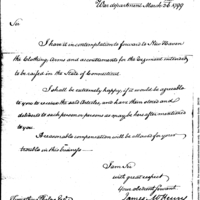 War department March 26. 1799
Sir
I have it in contemplation to forward to New Haven
the Clothing, Arms and accoutrements for the Regiment intended
to be raised in the State of Connecticut.
I shall be extremely happy if it would be agreeable
to you to receive the said Articles, and have them stored and
delivered to such person or persons as may be hereafter mentioned
to you.
A reasonable compensation will be allowed for your
trouble in this business.
I am Sir
with great respect
Your obedient Servant
James McHenry